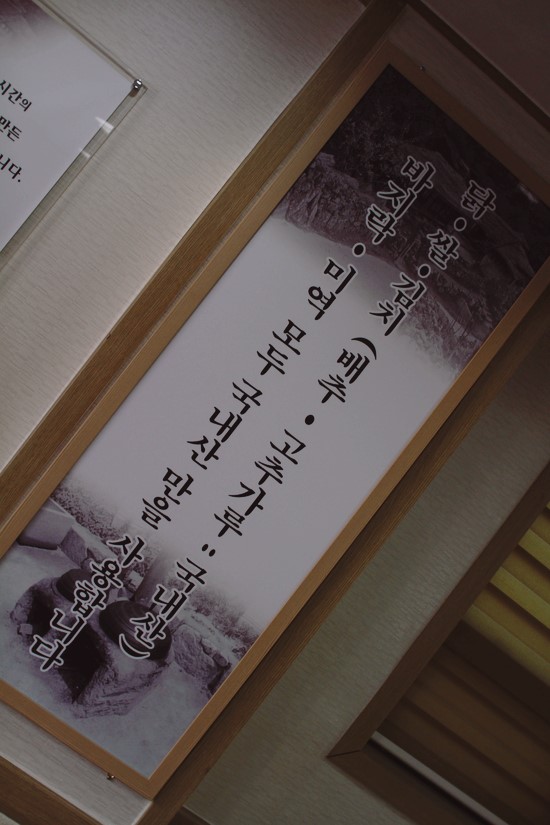 닭·쌀·김치 (배추·고추가루:국내산)
바지락·미역 모두 국내산 만을 사용합니다
시간의
만든
니다.